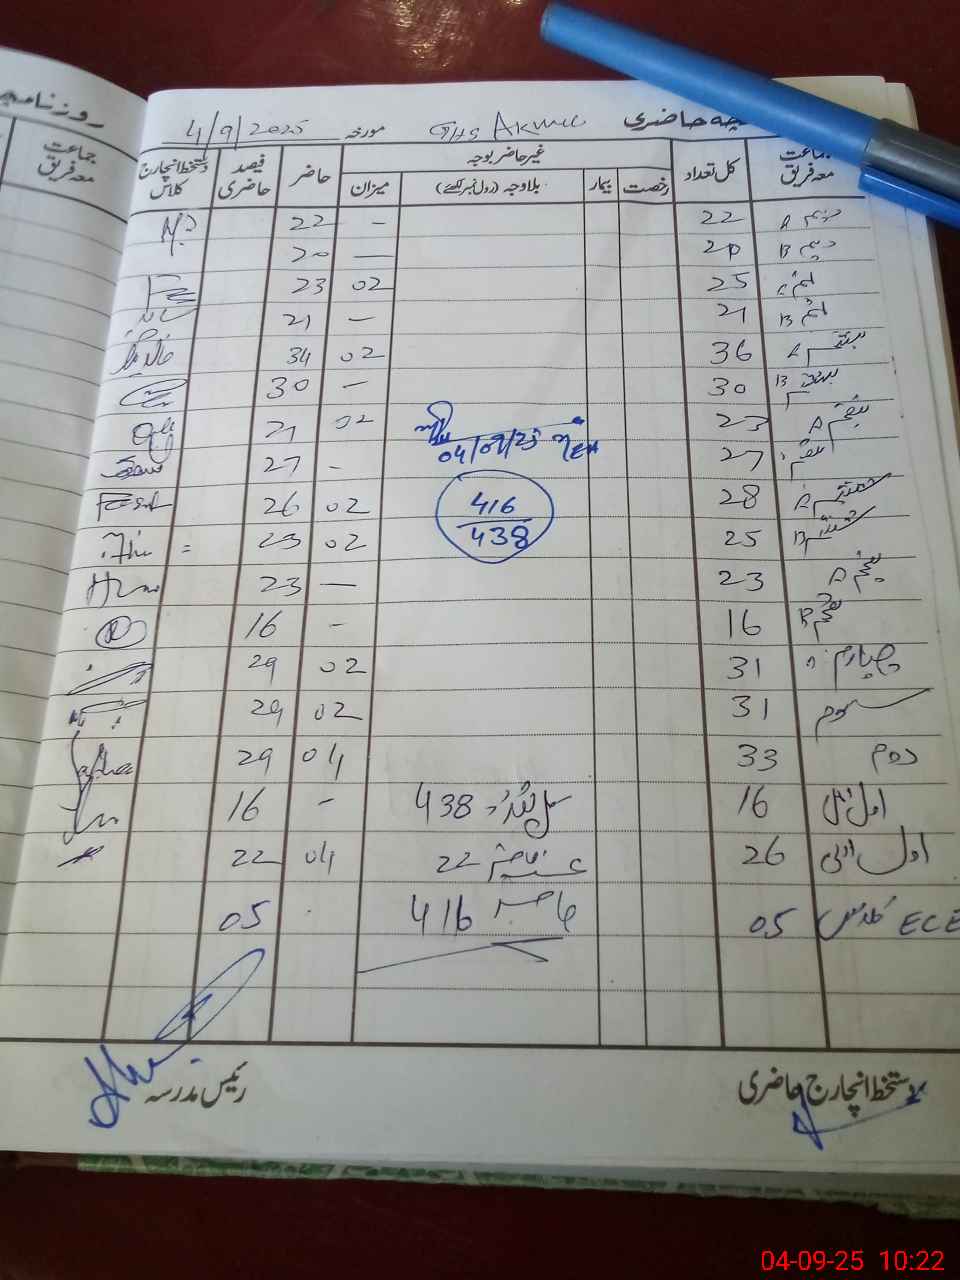 روزنامچہ
جماعت
معہ فریق
روزنامچہ حاضری GHS مورخہ 4/9/2025
جماعت معہ فریق کل تعداد غیر حاضر بوجہ حاضر فیصد حاضری دستخط انچارج کلاس
رخصت بیمار بلاوجہ (رول نمبر لکھئے) میزان
دہم A 22 - 22
دہم B 20 — 20
نہم A 25 02 23
نہم B 21 - 21
ہشتم A 36 02 34
ہشتم B 30 - 30
ہفتم A 23 02 21
ہفتم 27 - 27
ششم A 28 02 26
ششم B 25 02 23
پنجم A 23 — 23
پنجم B 16 - 16
چہارم 31 02 29
سوم 31 02 29
دوم 33 04 29
اول اعلیٰ 16 کل تعداد 438 - 16
اول ادنیٰ 26 غیر حاضر 22 04 22
ECE کلاس 05 حاضر 416 05
04/09/25
416
438
دستخط انچارج حاضری رئیس مدرسہ
04-09-25 10:22